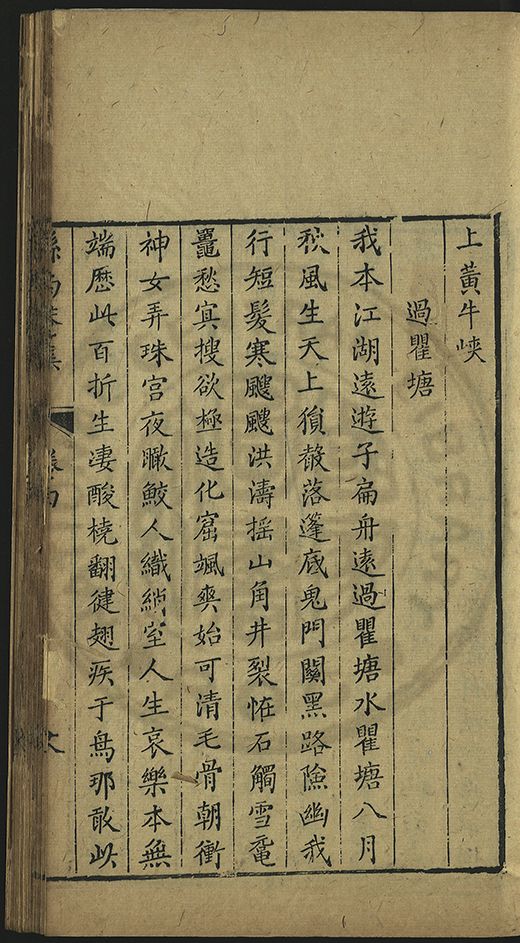 上黃牛峽
過瞿塘
我本江湖遠遊子扁舟遠過瞿塘水瞿塘八月
秋風生天上猿聲落蓬底鬼門關黑路險幽我
行短髮寒颼颼洪濤摇山角井裂恠石觸雪黿
鼉愁冥搜欲極造化窟颯爽始可清毛骨朝衝
神女弄珠宫夜瞰鮫人織綃室人生哀樂本無
端歷此百折生凄酸橈翻健翅疾于鳥那敢此